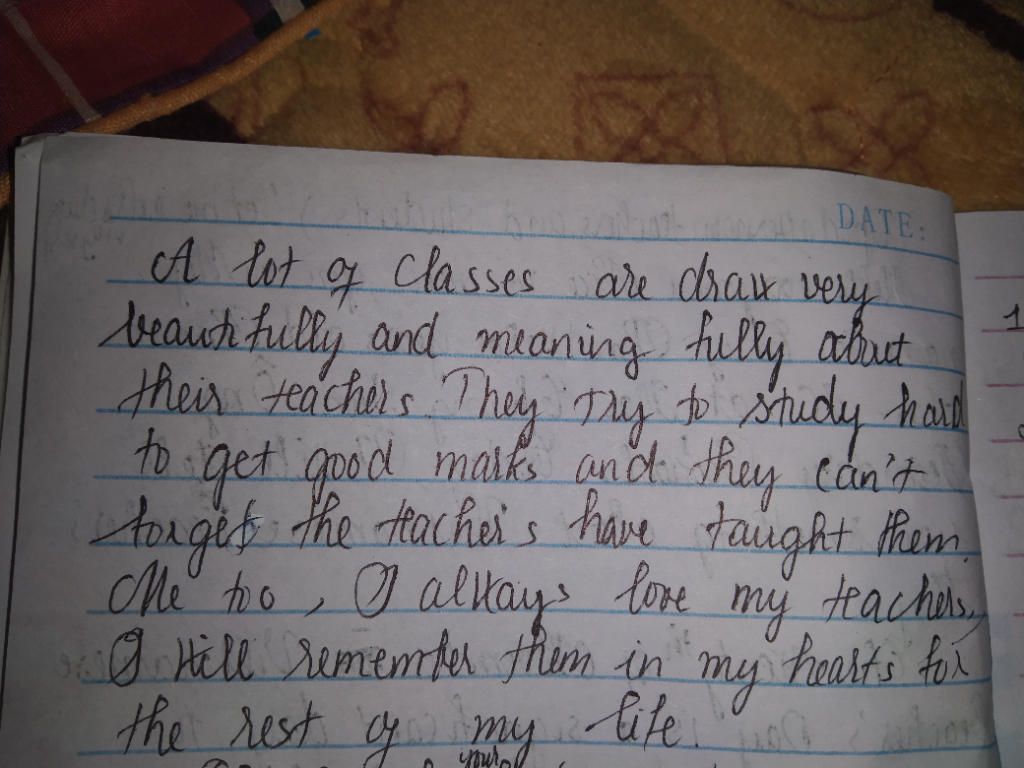 DATE:
A lot of classes are draw very
beautifully and meaning fully about
their teachers. They try to study hard
to get good marks and they can't
forget the teachers have taught them.
Me too, I always love my teachers,
I will remember them in my hearts for
the rest of my life.
your
1